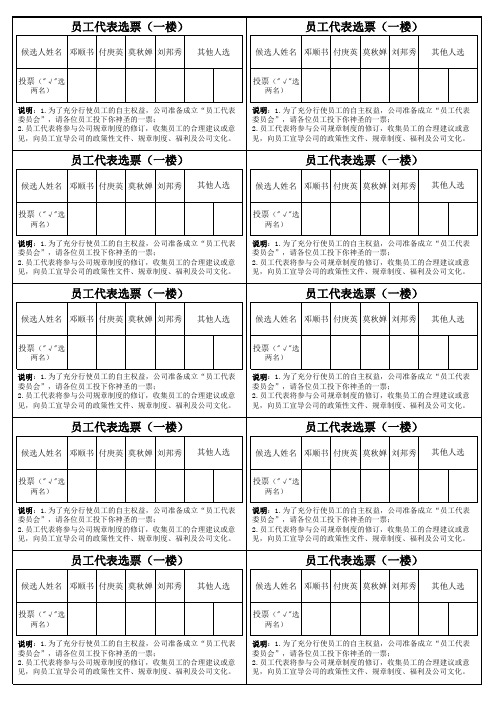 员工代表选票（一楼）
候选人姓名 邓顺书 付庚英 莫秋婵 刘邦秀 其他人选
投票（"√"选
两名）
说明：1.为了充分行使员工的自主权益，公司准备成立“员工代表
委员会”，请各位员工投下你神圣的一票；
2.员工代表将参与公司规章制度的修订，收集员工的合理建议或意
见，向员工宣导公司的政策性文件、规章制度、福利及公司文化。
员工代表选票（一楼）
候选人姓名 邓顺书 付庚英 莫秋婵 刘邦秀 其他人选
投票（"√"选
两名）
说明：1.为了充分行使员工的自主权益，公司准备成立“员工代表
委员会”，请各位员工投下你神圣的一票；
2.员工代表将参与公司规章制度的修订，收集员工的合理建议或意
见，向员工宣导公司的政策性文件、规章制度、福利及公司文化。
员工代表选票（一楼）
候选人姓名 邓顺书 付庚英 莫秋婵 刘邦秀 其他人选
投票（"√"选
两名）
说明：1.为了充分行使员工的自主权益，公司准备成立“员工代表
委员会”，请各位员工投下你神圣的一票；
2.员工代表将参与公司规章制度的修订，收集员工的合理建议或意
见，向员工宣导公司的政策性文件、规章制度、福利及公司文化。
员工代表选票（一楼）
候选人姓名 邓顺书 付庚英 莫秋婵 刘邦秀 其他人选
投票（"√"选
两名）
说明：1.为了充分行使员工的自主权益，公司准备成立“员工代表
委员会”，请各位员工投下你神圣的一票；
2.员工代表将参与公司规章制度的修订，收集员工的合理建议或意
见，向员工宣导公司的政策性文件、规章制度、福利及公司文化。
员工代表选票（一楼）
候选人姓名 邓顺书 付庚英 莫秋婵 刘邦秀 其他人选
投票（"√"选
两名）
说明：1.为了充分行使员工的自主权益，公司准备成立“员工代表
委员会”，请各位员工投下你神圣的一票；
2.员工代表将参与公司规章制度的修订，收集员工的合理建议或意
见，向员工宣导公司的政策性文件、规章制度、福利及公司文化。
员工代表选票（一楼）
候选人姓名 邓顺书 付庚英 莫秋婵 刘邦秀 其他人选
投票（"√"选
两名）
说明：1.为了充分行使员工的自主权益，公司准备成立“员工代表
委员会”，请各位员工投下你神圣的一票；
2.员工代表将参与公司规章制度的修订，收集员工的合理建议或意
见，向员工宣导公司的政策性文件、规章制度、福利及公司文化。
员工代表选票（一楼）
候选人姓名 邓顺书 付庚英 莫秋婵 刘邦秀 其他人选
投票（"√"选
两名）
说明：1.为了充分行使员工的自主权益，公司准备成立“员工代表
委员会”，请各位员工投下你神圣的一票；
2.员工代表将参与公司规章制度的修订，收集员工的合理建议或意
见，向员工宣导公司的政策性文件、规章制度、福利及公司文化。
员工代表选票（一楼）
候选人姓名 邓顺书 付庚英 莫秋婵 刘邦秀 其他人选
投票（"√"选
两名）
说明：1.为了充分行使员工的自主权益，公司准备成立“员工代表
委员会”，请各位员工投下你神圣的一票；
2.员工代表将参与公司规章制度的修订，收集员工的合理建议或意
见，向员工宣导公司的政策性文件、规章制度、福利及公司文化。
员工代表选票（一楼）
候选人姓名 邓顺书 付庚英 莫秋婵 刘邦秀 其他人选
投票（"√"选
两名）
说明：1.为了充分行使员工的自主权益，公司准备成立“员工代表
委员会”，请各位员工投下你神圣的一票；
2.员工代表将参与公司规章制度的修订，收集员工的合理建议或意
见，向员工宣导公司的政策性文件、规章制度、福利及公司文化。
员工代表选票（一楼）
候选人姓名 邓顺书 付庚英 莫秋婵 刘邦秀 其他人选
投票（"√"选
两名）
说明：1.为了充分行使员工的自主权益，公司准备成立“员工代表
委员会”，请各位员工投下你神圣的一票；
2.员工代表将参与公司规章制度的修订，收集员工的合理建议或意
见，向员工宣导公司的政策性文件、规章制度、福利及公司文化。